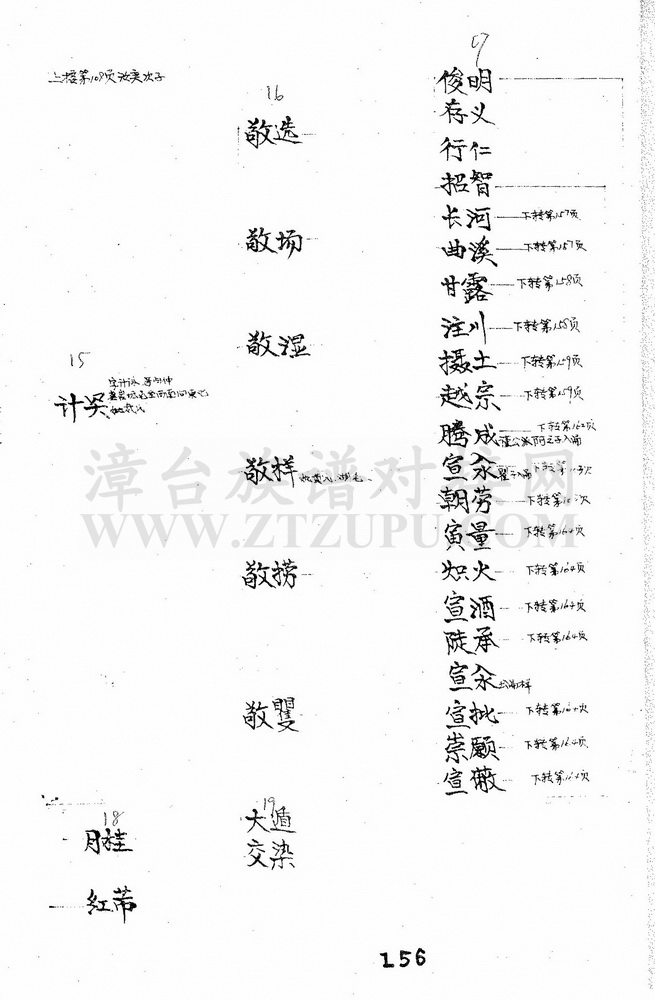 17
上接第109页汝奕次子
16
俊明
存义
敬选
行仁
招智
长河 下转第157页
敬场
曲溪 下转第157页
甘露 下转第158页
注川 下转第158页
敬湿
15
摄土 下转第159页
计
越宗 下转第159页
腾成 下转第162页
敬样
宣汆
朝劳
寅量 下转第164页
敬捞
炽火 下转第164页
宣酒 下转第164页
陡承 下转第164页
宣汆 出嗣样
敬矍
宣批
崇愿 下转第164页
宣
漳台族谱对接网
WWW.ZTZUPU.COM
18
19
月桂
大遁
交染
红蒂
156